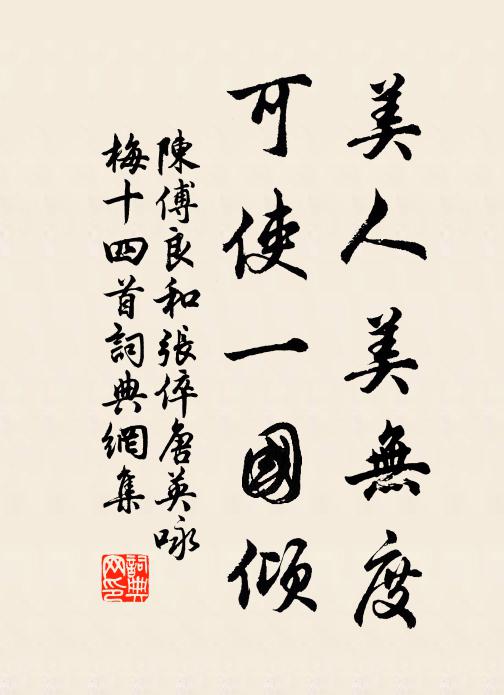 美人美無度
可使一國傾
陳傅良和張倅唐英咏
梅十四首詞典網集
詞典
网印